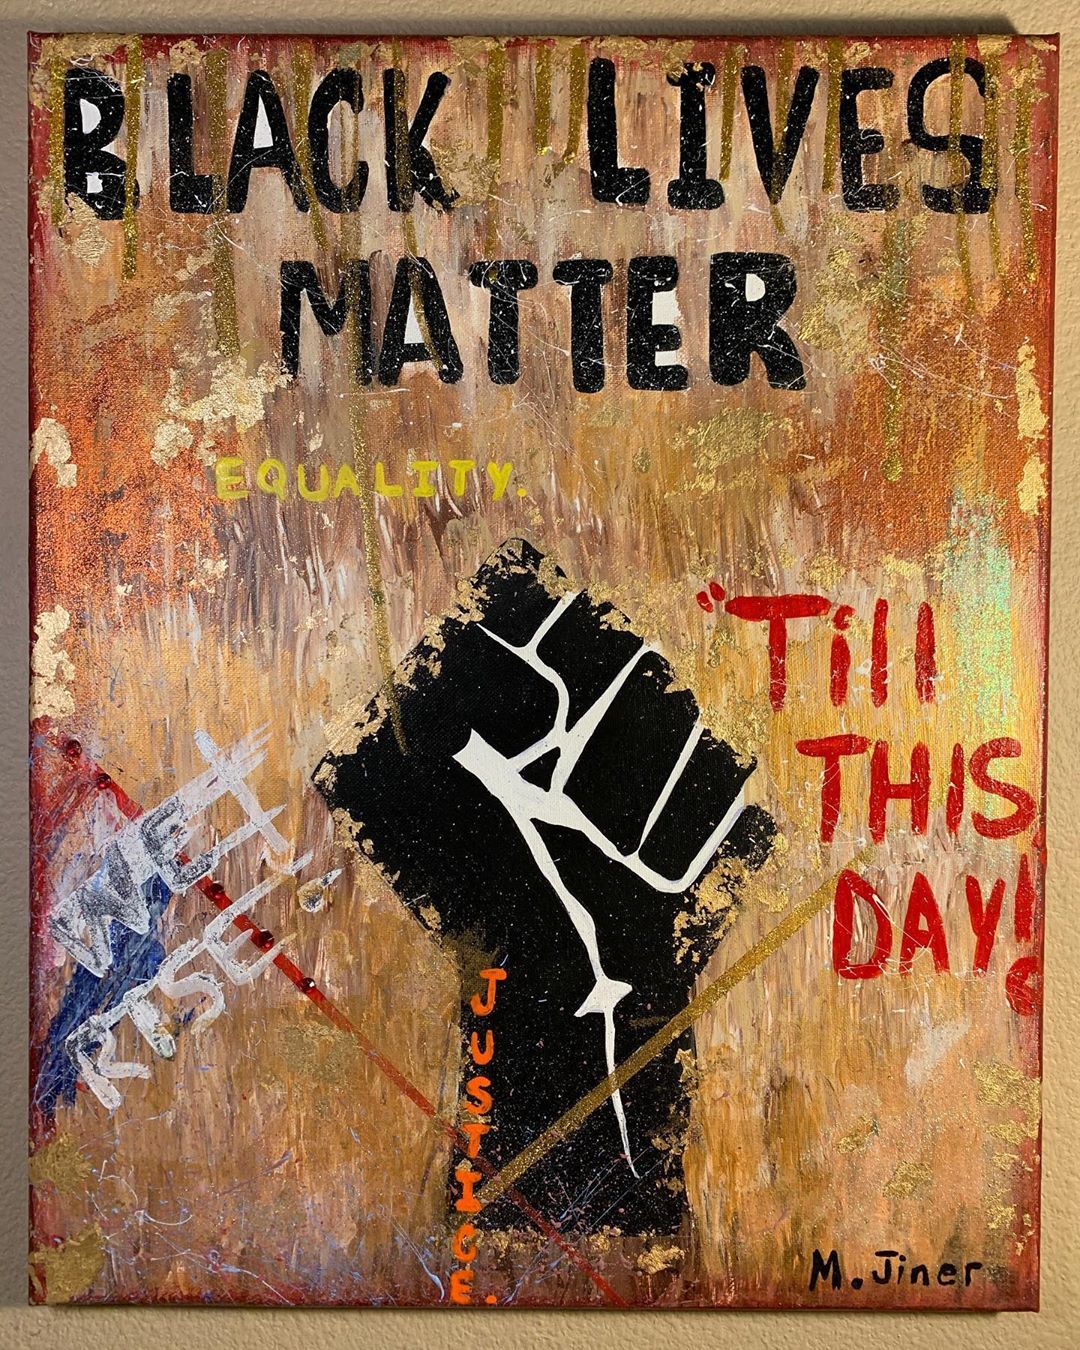 BLACK LIVES
MATTER
EQUALITY.
"Till
THIS
DAY!
WE
RISE!
JUSTICE.
M. Jiner